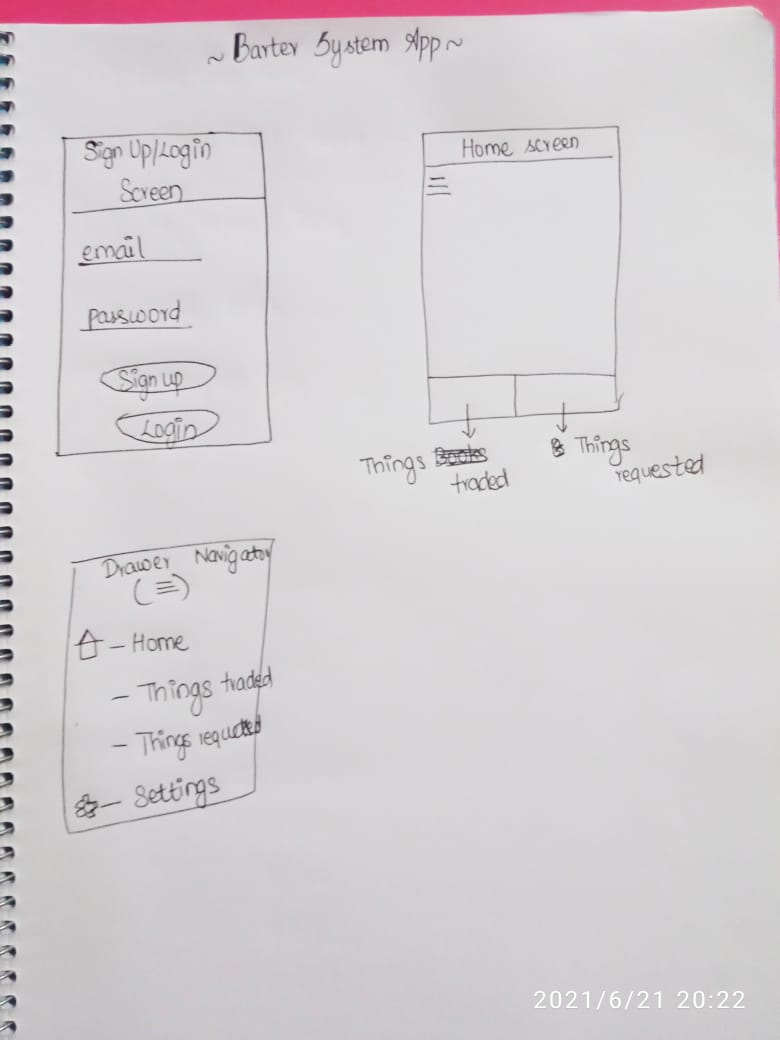 ~ Barter System App ~
Sign Up/Login
Screen
email
password
Sign up
Login
Home screen
Things Books
traded
Things
requested
Drawer Navigator
(☰)
– Home
– Things traded
– Things
– Settings
2021/6/21 20:22